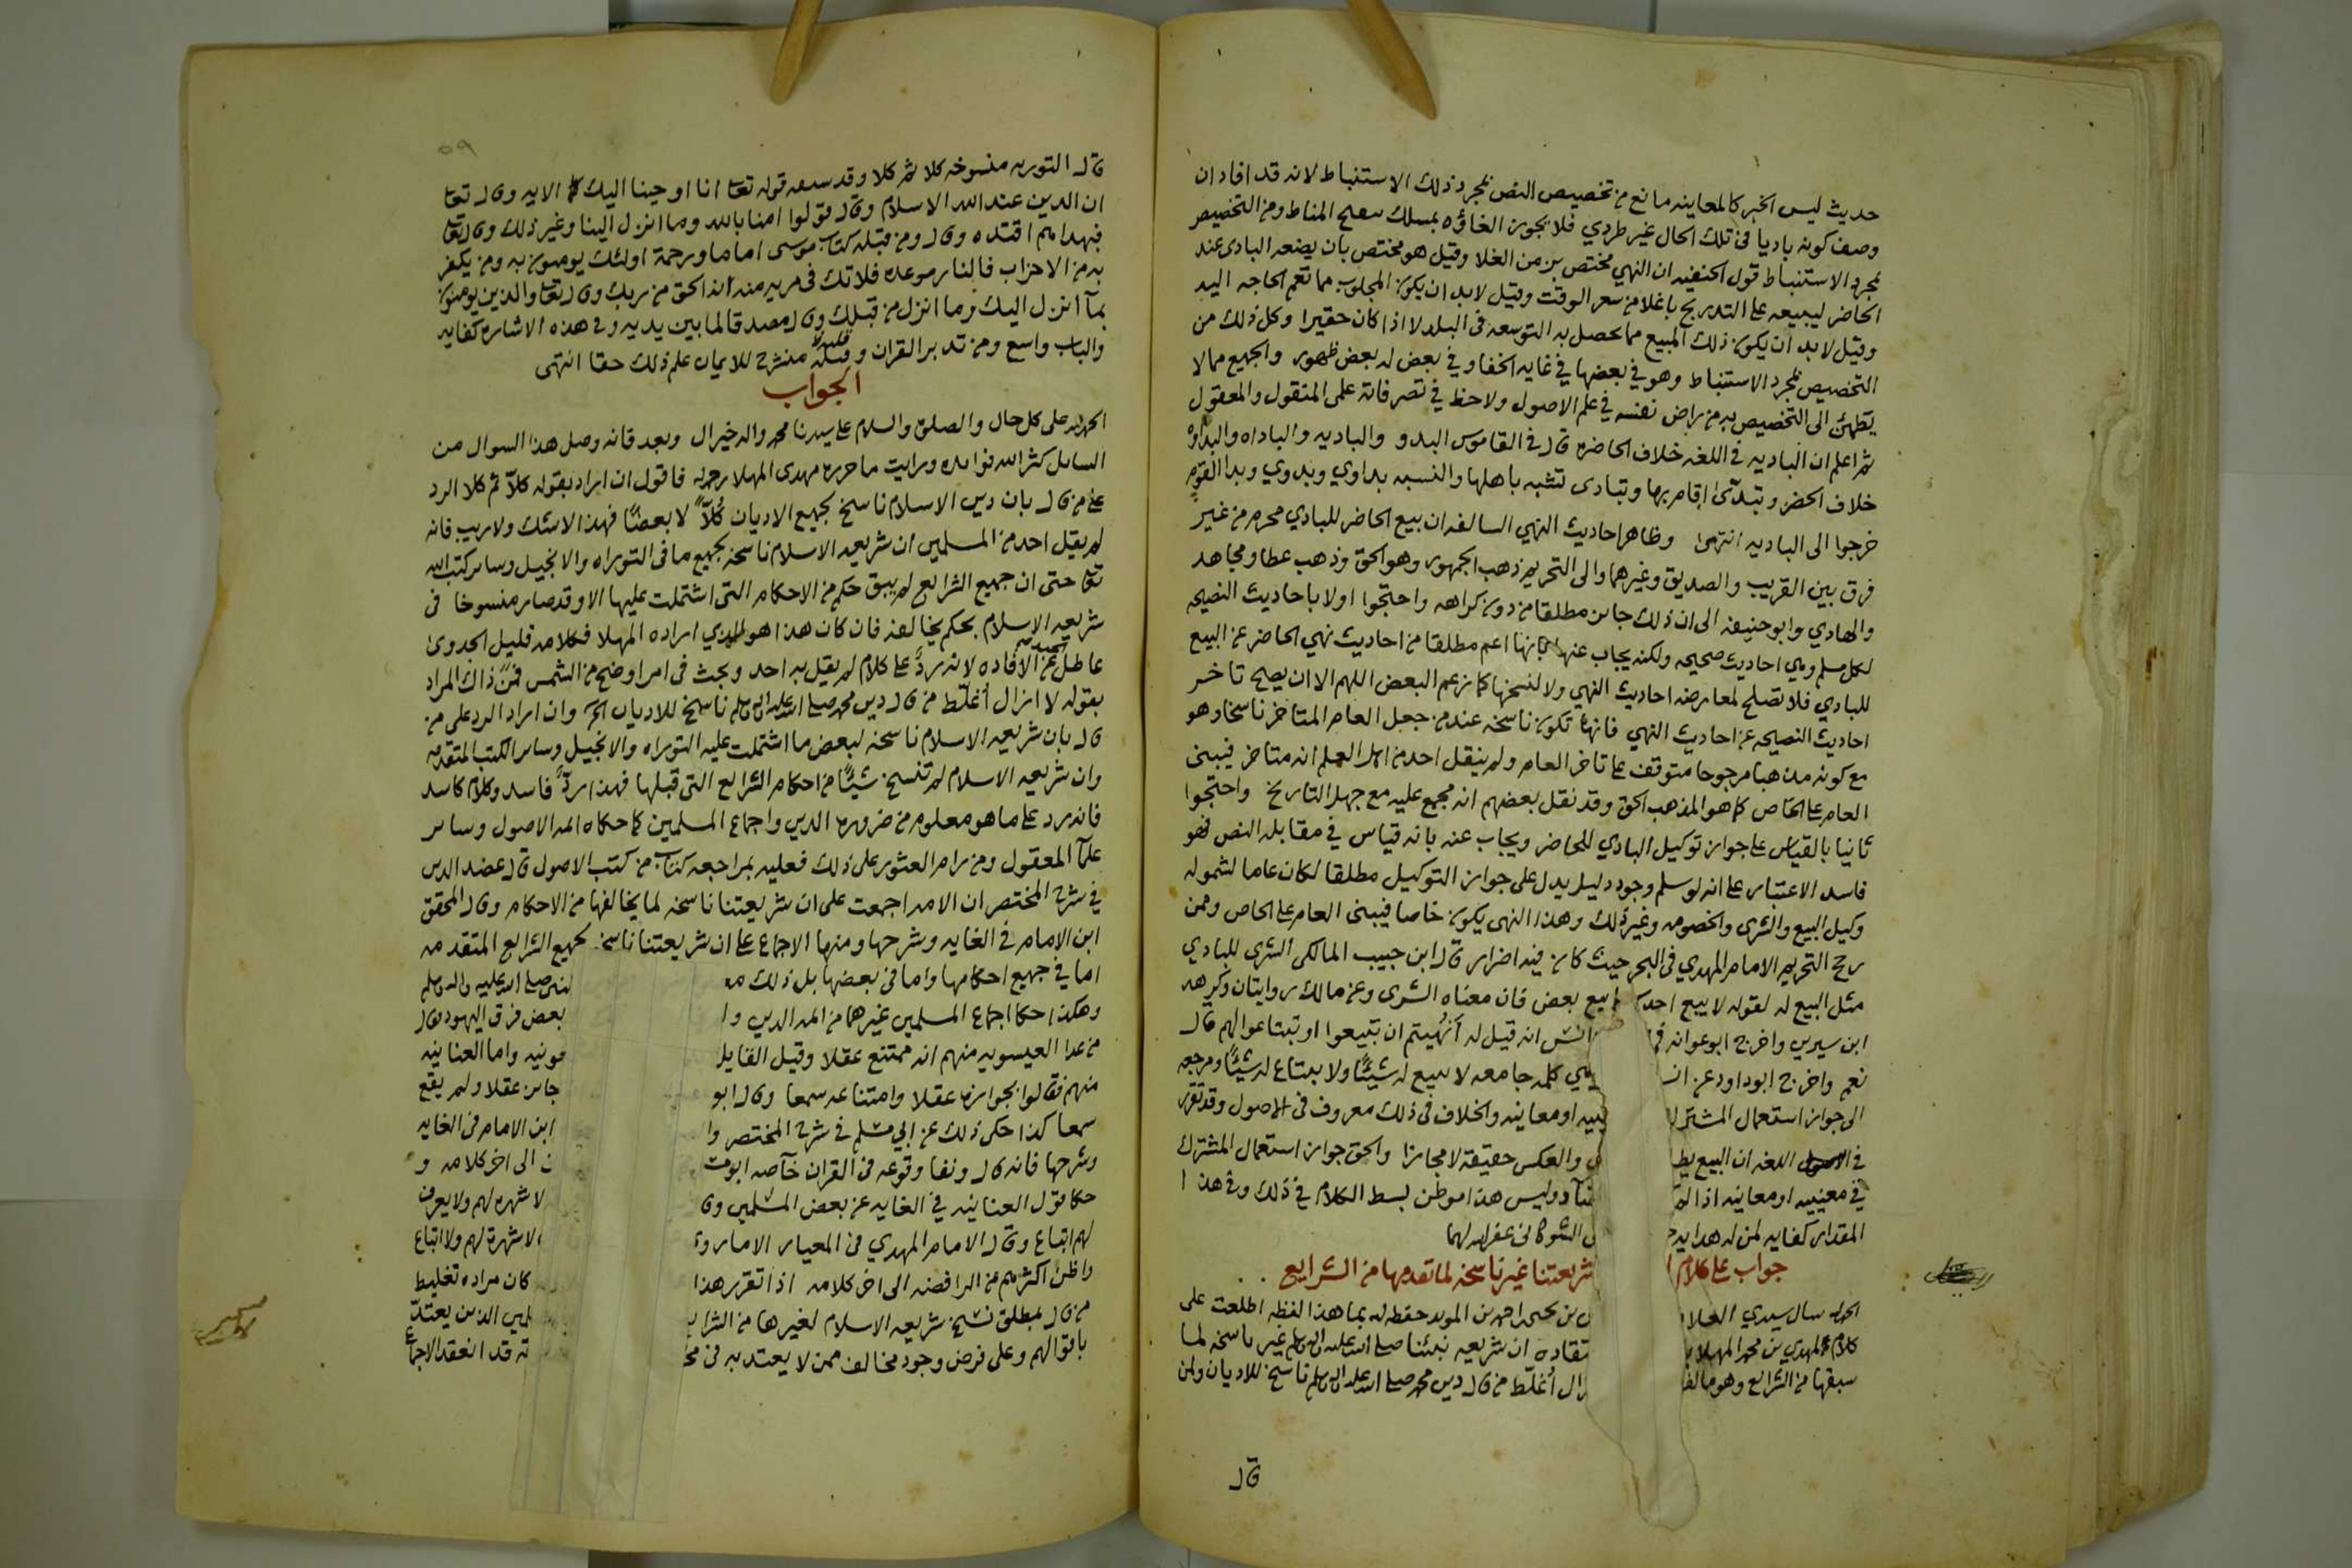 حديث ليس الخبر كالمعاينه مانع من تخصيص النص بمجرد ذلك الاستنباط لانه قد افاد ان
وصف كونه باديا في تلك الحال غير طردي فلا يجوز الغاؤه بمسلك تنقيح المناط ومن التخصيص
بمجرد الاستنباط قول الحنفيه ان النهي مختص بزمن الغلا وقيل هو مختص بان يضعه البادى عند
الحاضر ليبيعه على التدريج باغلا من سعر الوقت وقيل لابد ان يكون المجلوب مما تعم الحاجه اليه
وقيل لابد ان يكون ذلك المبيع مما يحصل به التوسعه في البلد لا اذا كان حقيرا وكل ذلك من
التخصيص بمجرد الاستنباط وهو في بعضها في غايه الخفا وفي بعض له بعض ظهور والجميع مما لا
يطمئن الى التخصيص به من راض نفسه في علم الاصول ولاحظ في تصرفاته علمى المنقول والمعقول
ثم اعلم ان الباديه في اللغه خلاف الحاضره قال في القاموس البدو والباديه والباداه والبداوه
خلاف الحضر وتبدّى اقام بها وتبادى تشبه باهلها والنسبه بداوي وبدوي وبدا القوم
خرجوا الى الباديه انتهى وظاهر احاديث النهي السالفه ان بيع الحاضر للبادي محرم من غير
فرق بين القريب والصديق وغيرهما والى التحريم ذهب الجمهور وهو الحق وذهب عطا ومجاهد
والهادي وابو حنيفه الى ان ذلك جائز مطلقا من دون كراهه واحتجوا اولا باحاديث النصيحه
لكل مسلم وهي احاديث صحيحه ولكنه يجاب عنها بانها اعم مطلقا من احاديث نهي الحاضر عن البيع
للبادي فلا تصلح لمعارضه احاديث النهي ولا لنسخها كما زعم البعض اللهم الا ان يصح تاخر
احاديث النصيحه عن احاديث النهي فانها تكون ناسخه عند من جعل العام المتاخر ناسخا وهو
مع كونه مذهبا مرجوحا متوقف على تاخر العام ولم ينقل احد من اهل العلم انه متاخر فيبنى
العام على الخاص كما هو المذهب الحق وقد نقل بعضهم انه مجمع عليه مع جهل التاريخ واحتجوا
ثانيا بالقياس على جواز توكيل البادي للحاضر ويجاب عنه بانه قياس في مقابله النص فهو
فاسد الاعتبار على انه لو سلم وجود دليل يدل على جواز التوكيل مطلقا لكان عاما لشموله
وكيل البيع والشرى والخصومه وغير ذلك وهذا النهى يكون خاصا فيبنى العام على الخاص وممن
رجح التحريم الامام المهدي في البحر حيث كان فيه اضرار قال ابن حبيب المالكى الشرى للبادي
مثل البيع له لقوله لا يبيع احدكم على بيع بعض فان معناه الشرى وعن مالك روايتان وكرهه
ابن سيرين واخرج ابو عوانه في انس انه قيل له أنهيتم ان تبيعوا او تبتاعوا لهم قال
نعم واخرج ابو داود عن ان هي كلمه جامعه لا يبيع له شيئًا ولا يبتاع له شيئًا ومرجعه
الى جواز استعمال المشترك معنييه او معانيه والخلاف في ذلك معروف في الاصول وقد تقرر
في اللغه ان البيع يطلق والعكس حقيقة لا مجازا والحق جواز استعمال المشترك
في معنييه او معانيه اذا لم وليس هذا موطن بسط الكلام في ذلك وفي هذا ا
المقدار كفايه لمن له هدايه الشوكانى غفر الله لهما
جواب على كلام شريعتنا غير ناسخه لما تقدمها من الشرايع
الحمد لله سال سيدي العلا بن يحيى احمد بن المويد حفظه الله بما هذا لفظه اطلعت على
كلام المهدي بن محمد المهلا اعتقاده ان شريعه نبينا صلى الله عليه وآله وسلم غير ناسخه لما
سبقها من الشرايع وهو ما لفظ ازال أغلّط من قال دين محمد صلى الله عليه وآله وسلم ناسخ للاديان ولمن
قال
٥٩
قال التوريه منسوخه كلا ثم كلا وقد سمعه قوله تعا انا اوحينا اليك كما الايه وقال تعا
ان الدين عند الله الاسلام وقال قولوا امنا بالله وما انزل الينا وغير ذلك وقال تعا
فبهداهم اقتده وقال ومن قبله كتاب موسى اماما ورحمة اولئك يومنون به ومن يكفر
به من الاحزاب فالنار موعده فلا تك في مريه منه انه الحق من ربك وقال تعا والذين يومنون
بما انزل اليك وما انزل من قبلك وقال مصدقا لما بين يديه وفي هذه الاشاره كفايه
والباب واسع ومن تدبر القران وقلبه منشرح للايمان علم ذلك حقا انتهى
الجواب
الحمد لله على كل حال والصلوة والسلام على سيدنا محمد واله خير ال وبعد فانه وصل هذا السوال من
السائل كثر الله فوائده ورايت ما حرره مهدى المهلا رحمه الله فاقول ان اراد بقوله كلّا ثم كلا الرد
على من قال بان دين الاسلام ناسخ لجميع الاديان كُلّاً لا بعضًا فهذا لا شك ولا ريب فانه
لم يقل احد من المسلمين ان شريعه الاسلام ناسخه لجميع ما في التوراه والانجيل وسائر كتب الله
تعا حتى ان جميع الشرايع لم يبق حكم من الاحكام التى اشتملت عليها الا وقد صار منسوخا في
شريعه الاسلام بحكم يخالفه فان كان هذا هو الذي اراده المهلا فكلامه قليل الجدوى
عاطل عن الافاده لانه ردٌّ على كلام لم يقل به احد وبحث في امر اوضح من الشمس فمن ذاك المراد
بقوله لا ازال أغلّط من قال دين محمد صلى الله عليه وآله وسلم ناسخ للاديان الخ وان اراد الرد على من
قال بان شريعه الاسلام ناسخه لبعض ما اشتملت عليه التوراه والانجيل وسائر الكتب المتقدمه
وان شريعه الاسلام لم تنسخ شيئًا من احكام الشرايع التى قبلها فهذا ردٌّ فاسد وكلام كاسد
فانه رد على ما هو معلوم من ضروره الدين واجماع المسلمين كما حكاه ائمه الاصول وسائر
علما المعقول ومن رام العثور على ذلك فعليه بمراجعه كتاب من كتب الاصول قال عضد الدين
في شرح المختصر ان الامه اجمعت على ان شريعتنا ناسخه لما يخالفها من الاحكام وقال المحقق
ابن الامام في الغايه وشرحها ومنها الاجماع على ان شريعتنا ناسخه لجميع الشرايع المتقدمه
اما في جميع احكامها واما في بعضها بل ذلك مع لنبي صلى الله عليه واله وسلم
وهكذا حكا اجماع المسلمين غيرهما من ائمه الدين وا بعض فرق اليهود فقال
من عدا العيسويه منهم انه ممتنع عقلا وقيل القايل عونيه واما العنانيه
منهم فقالوا بجوازه عقلا وامتناعه سمعا وقال ابو جائز عقلا ولم يقع
سمعا كذا حكى ذلك عن ابي مسلم في شرح المختصر وا ابن الامام في الغايه
وشرحها فانه قال ونفا وقوعه في القران خاصه ابو مسلم الى اخر كلامه و
حكا قول العنانيه في الغايه عن بعض المسلمين وقا لا شهره لهم ولا يعرف
لهم اتباع وقال الامام المهدي في المعيار الامار وا لا شهرة لهم ولا اتباع
واظن اكثرهم من الرافضه الى اخر كلامه اذا تقرر هذا كان مراده تغليط
من قال بمطلق نسخ شريعه الاسلام لغيرها من الشرايع لمين الذين يعتدّ
باقوالهم وعلى فرض وجود مخالف ممن لا يعتد به في مخ ته قد انعقد الاجماع